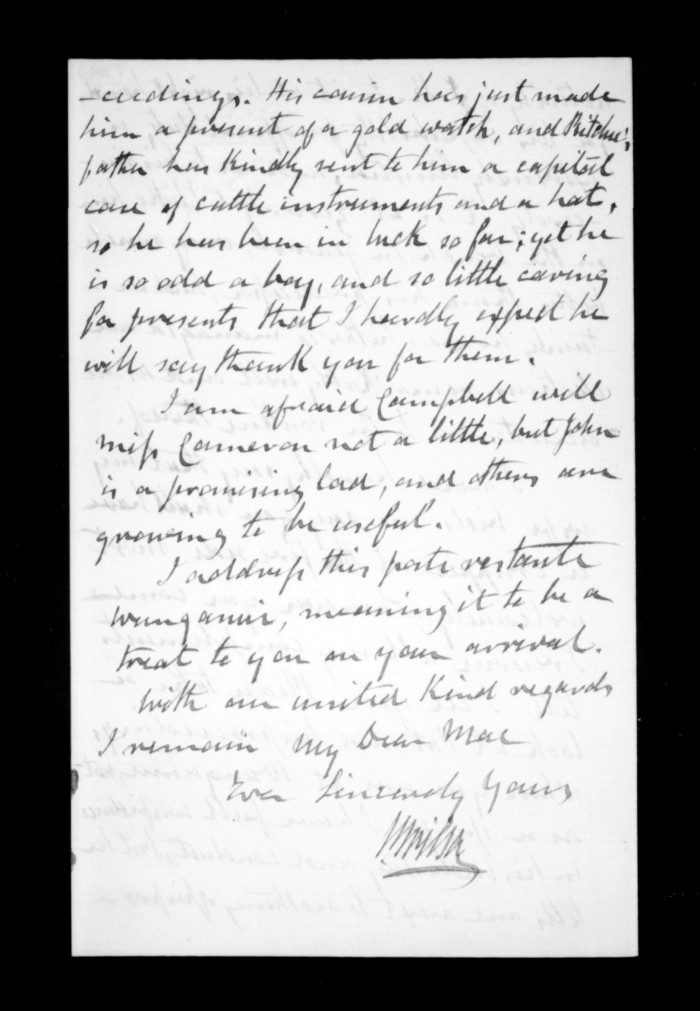 -ceedings. His cousin has just made
him a present of a gold watch, and Ritchie's
father has kindly sent to him a capital
case of cattle instruments and a hat,
so he has been in luck so far; yet he
is so odd a boy, and so little caring
for presents that I hardly expect he
will say thank you for them.
I am afraid Campbell will
miss Cameron not a little, but John
is a promising lad, and others are
growing to be useful.
I address this poste restante
Wanganui, meaning it to be a
treat to you on your arrival.
With our united kind regards
I remain My Dear Mac
Ever Sincerely Yours